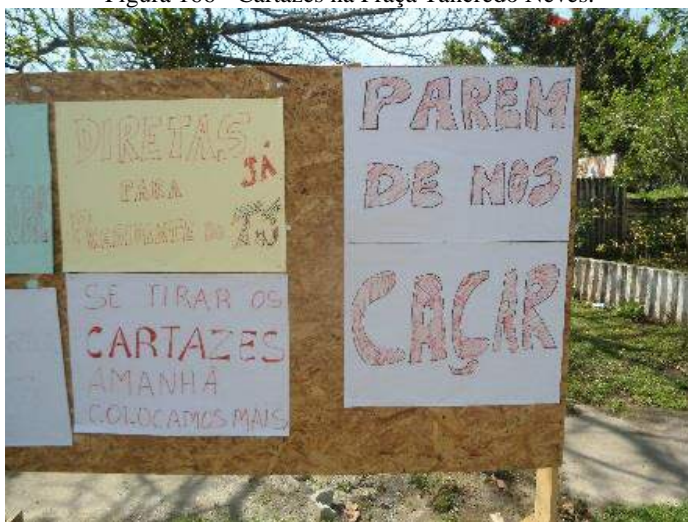 Figura 166 - Cartazes na Praça Tancredo Neves.
DIRETAS
JÁ
PARA
PRESIDENTE DO
TJ
SE TIRAR OS
CARTAZES
AMANHÃ
COLOCAMOS MAIS
PAREM
DE NOS
CAÇAR